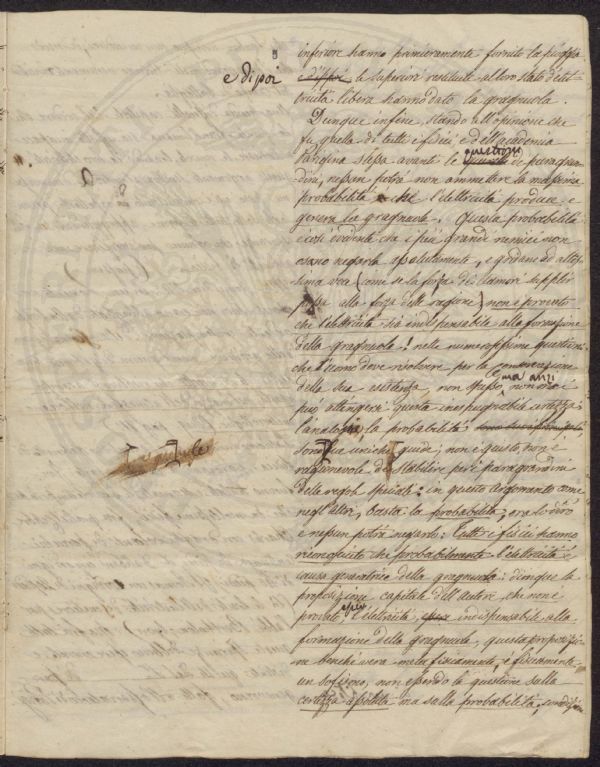 inferiore hanno primieramente fornito la pioggia
e dipoi
le superiori restituite al loro stato d'elet-
tricità libera hanno dato la gragnuola.
Dunque infine, stando all'opinione che
fu quella di tutti i fisici, e dell'academia
Parigina stessa avanti le questioni de paragran-
dini, nessun potrà non ammettere la massima
probabilità che l'elettricità produce, e
genera la gragnuola. Questa probabilità
è così evidente che i più grandi nemici non
osano negarla assolutamente, e gridano ad altis-
sima voce (come se la forza de' clamori supplir
potesse alla forza delle ragioni) non è provato
che l'elettricità sia indispensabile alla formazione
della gragnuola! nelle numerosissime questioni
che l'uomo deve risolvere per la conservazione
della sua esistenza, non spesso, ma anzi non mai
può attingere questa inespugnabile certezza:
l'analogia, la probabilità
sono sue uniche guide; non è giusto, non è
ragionevole di stabilire pei paragrandini
delle regole speciali: in questo argomento come
negl'altri, basta la probabilità; ora lo dirò
e nessun potrà negarlo: Tutti i fisici hanno
riconosciuto che probabilmente l'elettricità è
causa generatrice della gragnuola: dunque la
proposizione capitale dell'autore che non è
provato esser l'elettricità indispensabile alla
formazione della gragnuola, questa proposizio-
ne benchè vera metafisicamente, è fisicamente
un sofisma, non essendo la questione sulla
certezza assoluta ma sulla probabilità,